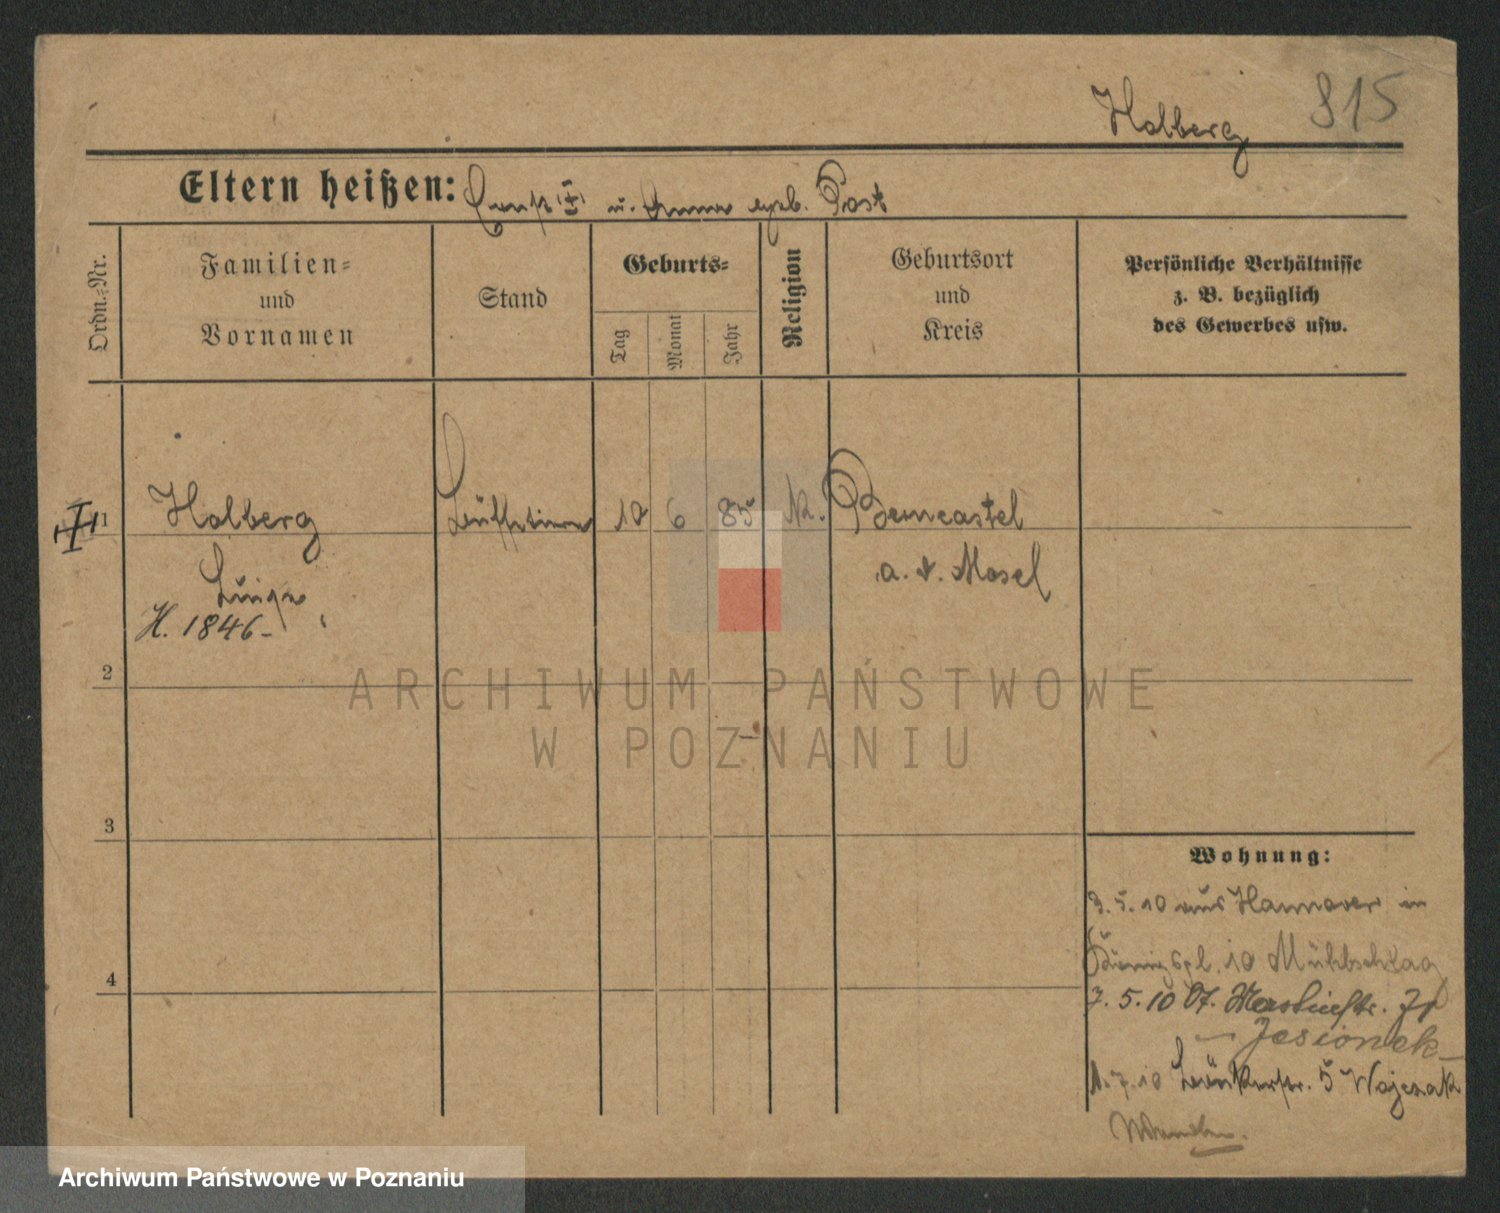 Halberg 815
Eltern heißen: Ernst u. Anna geb. Post
Ordn.=Nr.
Familien=
und
Vornamen
Stand
Geburts=
Tag
Monat
Jahr
Religion
Geburtsort
und
Kreis
Persönliche Verhältnisse
z. B. bezüglich
des Gewerbes usw.
1 Halberg 10 6 85 Berncastel
a. d. Mosel
H. 1846-
2
3
4
Wohnung:
3.5.10 aus Hannover in
Königspl. 10
7.5.10
Jesionek
1.7.10 5
ARCHIWUM PAŃSTWOWE
W POZNANIU
Archiwum Państwowe w Poznaniu